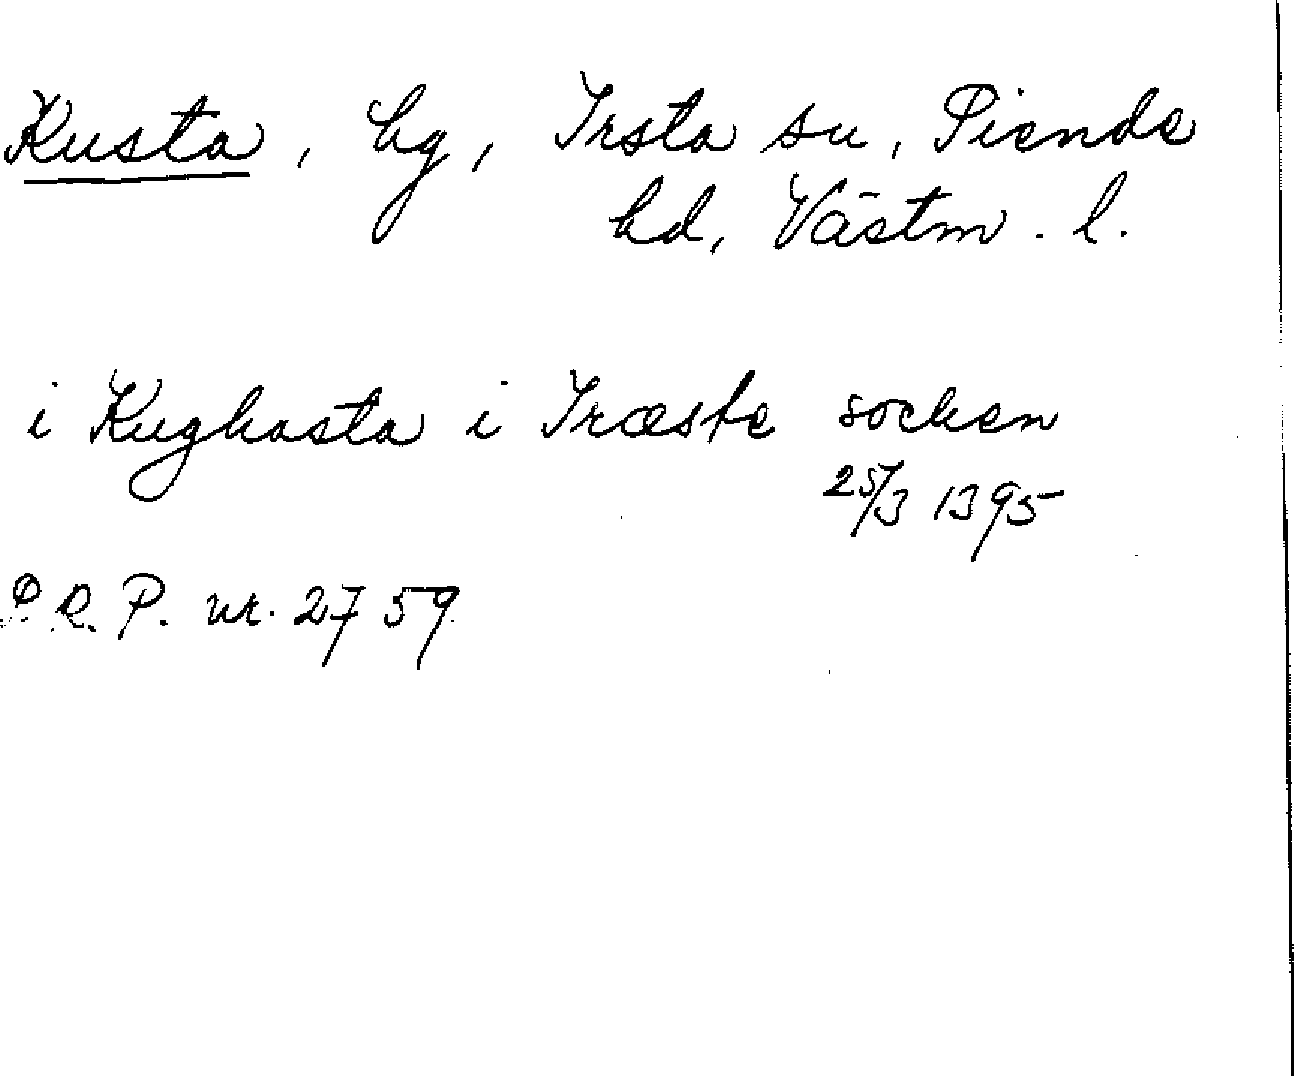 Kusta, hg, Irsta sn, Siende
hd, Västm. l.
i Kughasta i Iræste socken
25/3 1395
P.R.P. nr. 2759